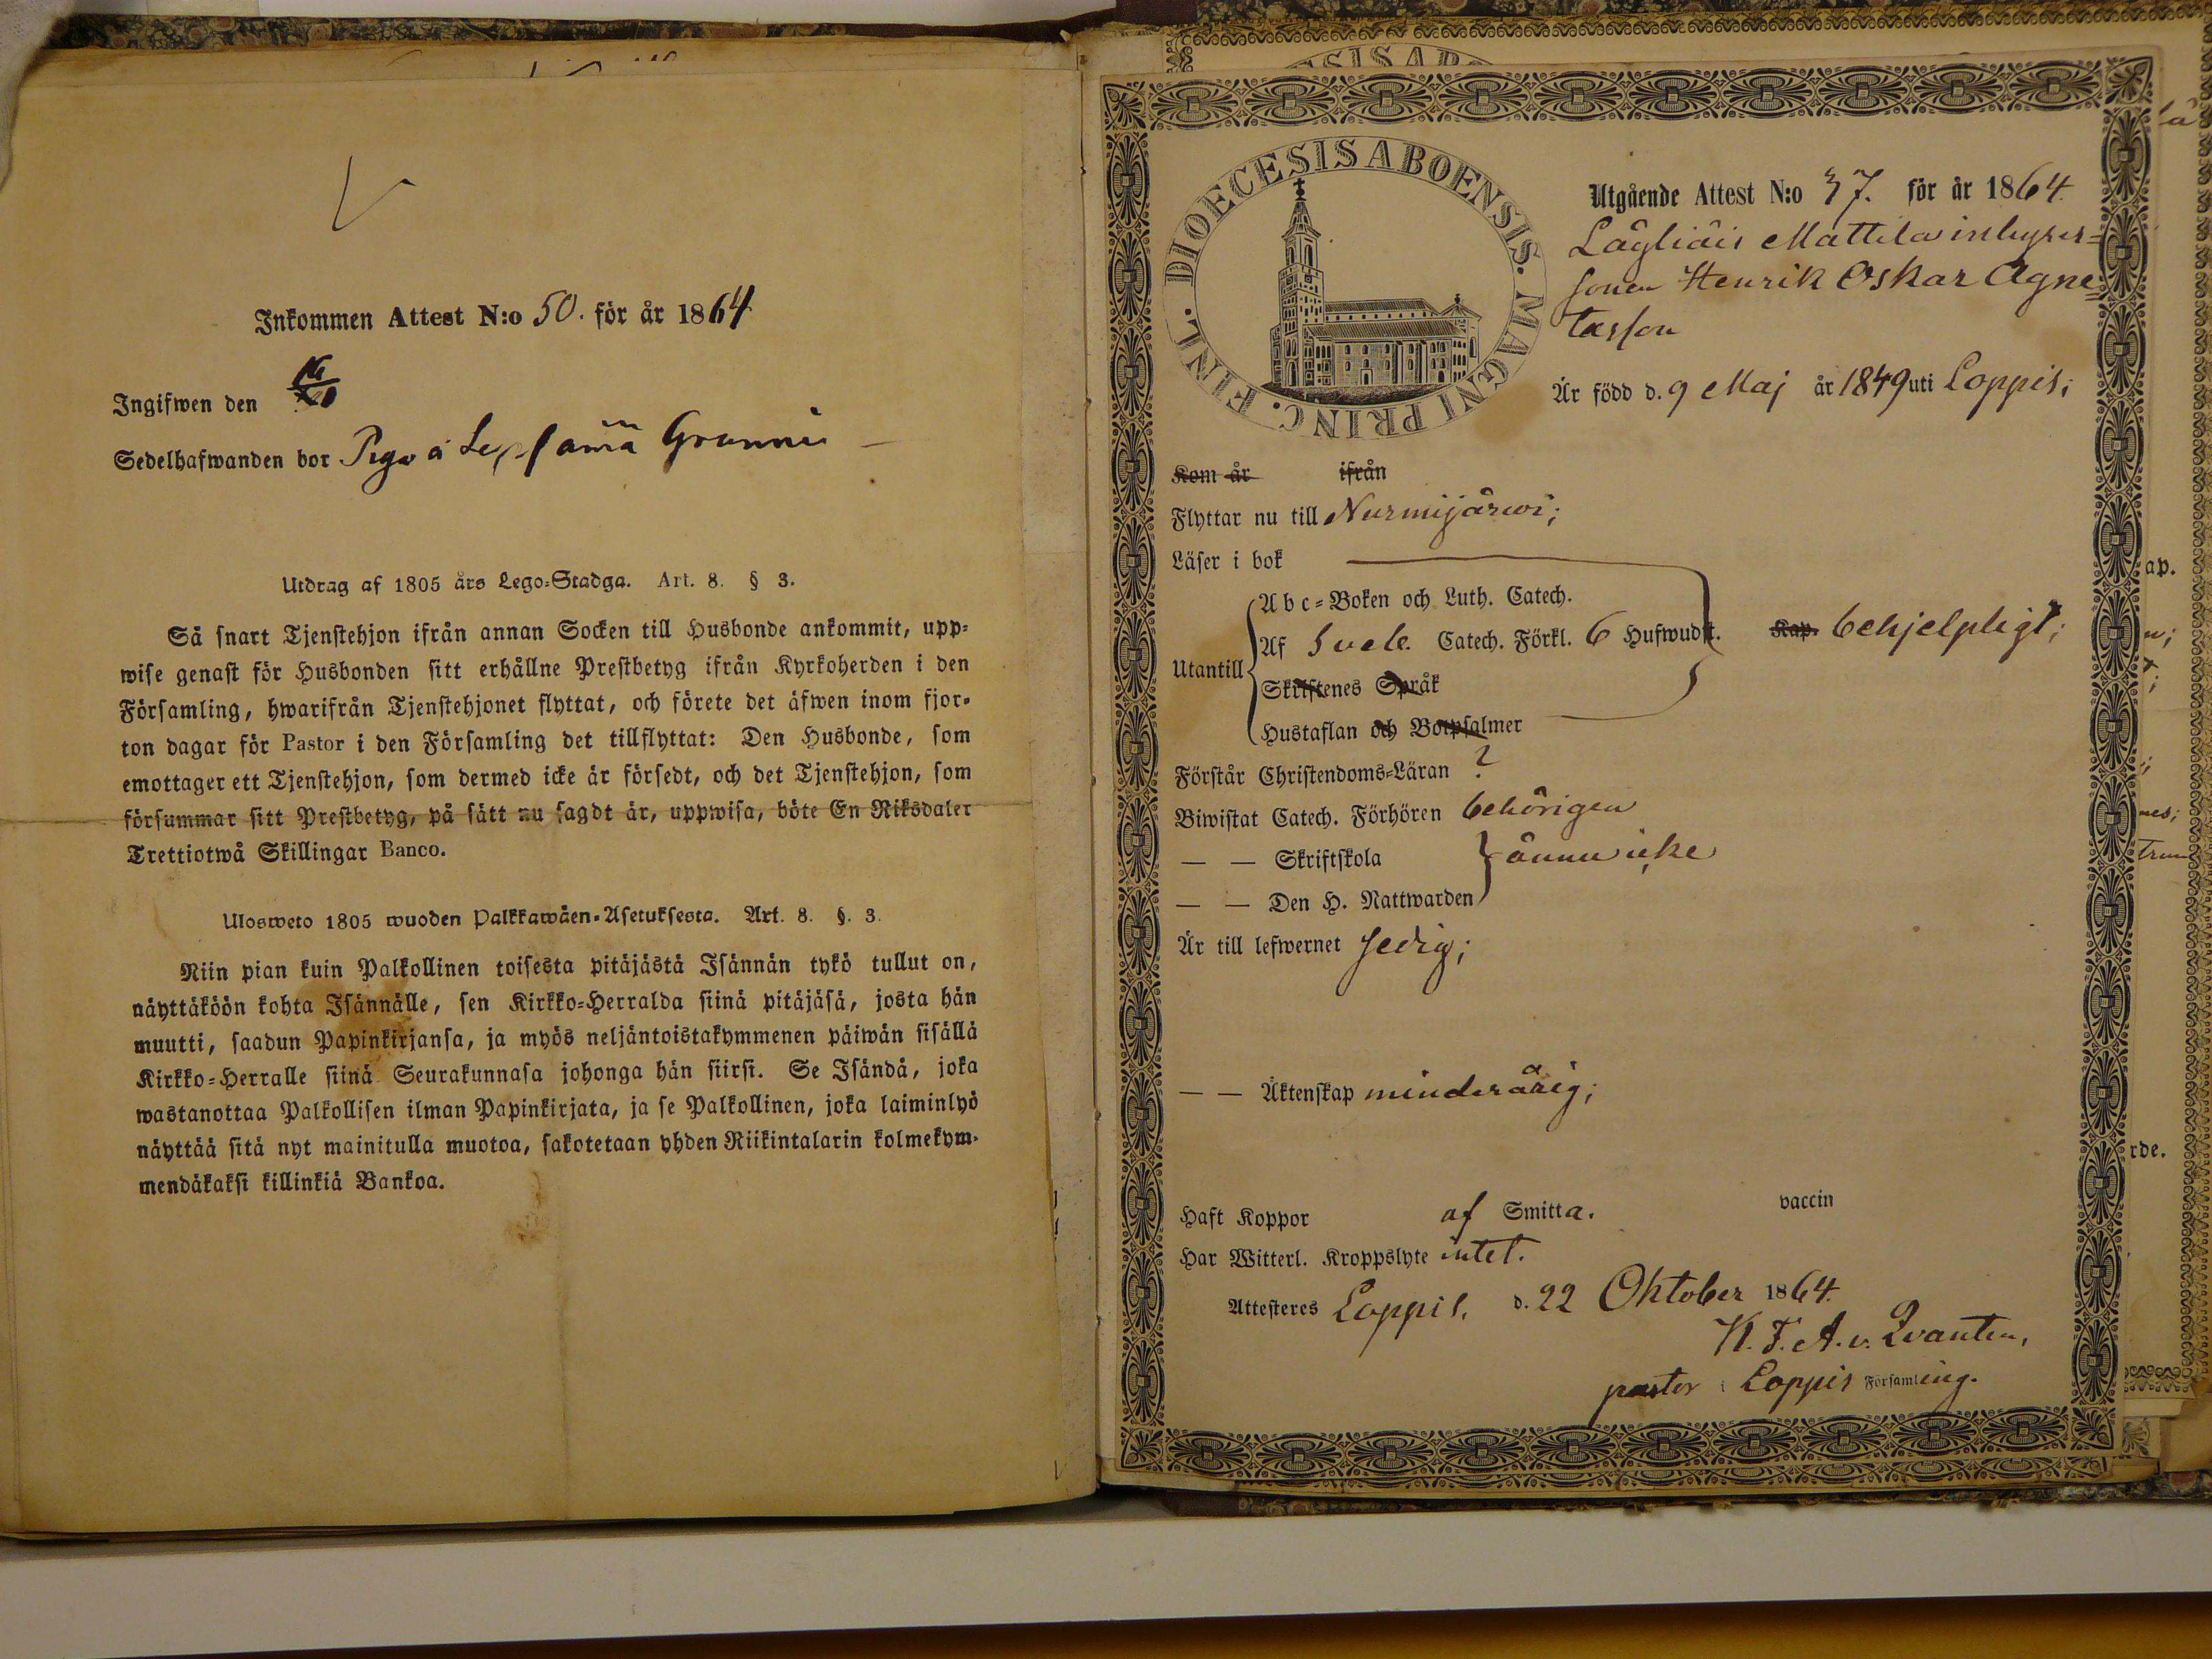 Inkommen Attest N:o 50. för år 1864
Ingifwen den
Sedelhafwanden bor å
Utdrag af 1805 års Lego-Stadga. Art. 8. § 3.
Så snart Tjenstehjon ifrån annan Socken till Husbonde ankommit, upp-
wise genast för Husbonden sitt erhållne Prestbetyg ifrån Kyrkoherden i den
Församling, hwarifrån Tjenstehjonet flyttat, och förete det äfwen inom fjor-
ton dagar för Pastor i den Församling det tillflyttat: Den Husbonde, som
emottager ett Tjenstehjon, som dermed icke är försedt, och det Tjenstehjon, som
försummar sitt Prestbetyg, på sätt nu sagdt är, uppwisa, böte En Riksdaler
Trettiotwå Skillingar Banco.
Ulosweto 1805 wuoden Palkkawäen-Asetuksesta. Art. 8. §. 3.
Niin pian kuin Palkollinen toisesta pitäjästä Isännän tykö tullut on,
näyttäköön kohta Isännälle, sen Kirkko-Herralda siinä pitäjäsä, josta hän
muutti, saadun Papinkirjansa, ja myös neljäntoistakymmenen päiwän sisällä
Kirkko-Herralle siinä Seurakunnasa johonga hän siirsi. Se Isändä, joka
wastanottaa Palkollisen ilman Papinkirjata, ja se Palkollinen, joka laiminlyö
näyttää sitä nyt mainitulla muotoa, sakotetaan yhden Riikintalarin kolmekym-
mendäkaksi killinkiä Bankoa.
DIOECESIS ABOENSIS. MAGNI PRINC. FINL.
Utgående Attest N:o 37. för år 1864.
Läyliäis Mattila inhyses-
sonen Henrik Oskar Agne-
tasson
Är född d. 9 Maj år 1849 uti Loppis;
Kom år ifrån
Flyttar nu till Nurmijärwi;
Läser i bok
Utantill
Abc-Boken och Luth. Catech.
Af Sveb. Catech. Förkl. 6 Hufwudst. Kap. behjelpligt;
Skriftenes Språk
Hustaflan och Botpsalmer
Förstår Christendoms-Läran ?
Biwistat Catech. Förhören behörigen
— — Skriftskola ännu icke
— — Den H. Nattwarden
Är till lefwernet sedig;
— — Äktenskap minderårig;
Haft Koppor af Smitta. vaccin
Har Witterl. Kroppslyte intet.
Attesteres Loppis, d. 22 Oktober 1864.
K. F. A. v. Qvanten,
pastor i Loppis Församling.
ap.
rde.